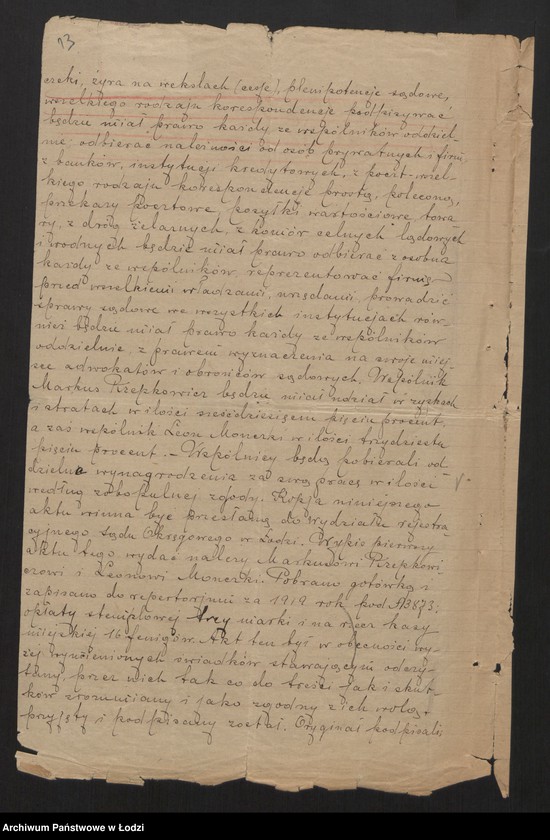 13
czeki, żyra na wekslach (cesje), plenipotencje sądowe,
wszelkiego rodzaju korespondencje podpisywać
będzie miał prawo każdy ze wspólników oddziel-
nie; odbierać należności od osób prywatnych i firm,
z banków, instytucji kredytowych, z poczt wszel-
kiego rodzaju korespondencje prostą, poleconą,
przekazy pocztowe, posyłki wartościowe, towa
ry, z dróg żelaznych, z komór celnych lądowych
i wodnych będzie miał prawo odbierać z osobna
każdy ze wspólników reprezentować firmę
przed wszelkiemi władzami, urzędami, prowadzić
sprawy sądowe we wszystkich instytucjach rów-
nież będzie miał prawo każdy ze wspólników
oddzielnie, z prawem wyznaczenia na swoje miej-
sce adwokatów i obrońców sądowych. Wspólnik
Markus Rzepkowicz będzie miał udział w zyskach
i stratach w ilości sześćdziesięciu pięciu procent,
a zaś wspólnik Leon Moneszki w ilości trzydziestu
pięciu procent. - Wspólnicy będą pobierali od
dzielne wynagrodzenie za swą pracę w ilości
według zobopólnej zgody. Kopja niniejszego
aktu winna być przesłaną do wydziału rejestra
cyjnego Sądu Okręgowego w Łodzi. Wypis pierwszy
aktu tego wydać należy Markusowi Rzepkowi-
czowi i Leonowi Moneszki. Pobrano gotówką i
zapisano do repertorjum za 1919 rok pod N3873;
opłaty stemplowej trzy marki i na rzecz kasy
miejskiej 16 fenigów. Akt ten był w obecności wy-
żej wymienionych świadków stawającym odczy-
tany, przez nich tak co do treści jak i skut-
ków zrozumiany i jako zgodny z ich wolą,
przyjęty i podpisany został. Oryginał podpisali:
Archiwum Państwowe w Łodzi